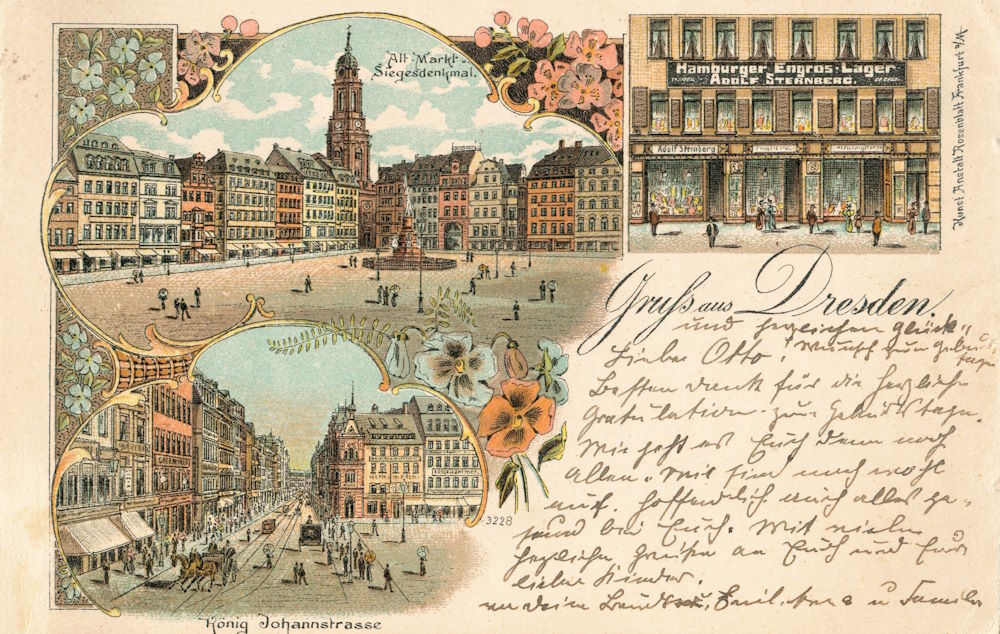 Alt-Markt u.
Siegesdenkmal.
Hamburger Engros-Lager
ADOLF STERNBERG.
Adolf Sternberg
Kunst Anstalt Rosenblatt Frankfurt a/M.
Gruß aus Dresden.
und herzlichen Glück-
Lieber Otto! wunsch zum Geburts
tage
Besten Dank für die herzliche
Gratulation zum Geburtstage.
Wie geht es Euch denn noch
allen. Wir sind noch wohl
auf. hoffendlich auch alles ge-
sund bei Euch. Mit vielen
herzliche Grüße an Euch und Eure
lieben Kinder.
Emil, u Familie
3228
König Johannstrasse